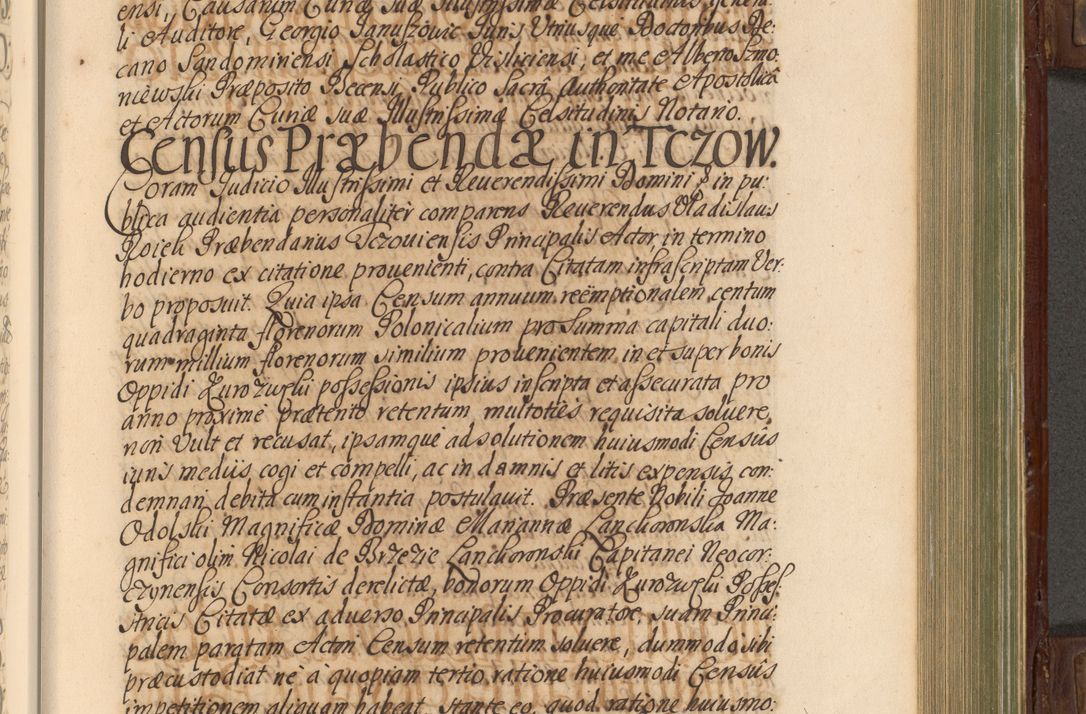 ensi, Causarum Curiæ suæ Illustrissimæ Celsitudinis Genera
li Auditore, Georgio Januszovic Juris Utriusque Doctoribus De:
cano Sandominensi Scholastico Visliciensi, et me Alberto Szmo:
niewski Præposito Becensi, Publico Sacrâ Authoritate Apostolicâ
et Actorum Curiæ suæ Illustrissimæ Celsitudinis Notario.
Census Præbendæ in Tczow.
Coram Judicio Illustrissimi et Reuerendissimi Domini & in pu:
blica audientia personaliter comparens Reuerendus Vladislaus
Roieli Præbendarius Tczouiensis Principalis Actor, in termino
hodierno ex citatione prouenienti, contra Citatam infrascriptam Ver:
bo proposuit. Quia ipsa Censum annuum reëmptionalem, centum
quadraginta florenorum Polonicalium pro Summa capitali duo:
rum millium florenorum similium prouenientem, in et super bonis
Oppidi Zurozwski possessionis ipsius inscripta et assecurata pro
anno proximè prætento retentum multoties requisita soluere,
non vult et recusat, ipsamque ad solutionem huiusmodi Censûs
iuris mediis cogi et compelli, ac in damnis et litis expensis con:
demnari debita cum instantia postulauit. Præsente Nobili Joanne
Odolski Magnificæ Dominæ Mariannæ Lanckoronska Ma:
gnifici olim Nicolai de Brzezie Lanckoronski Capitanei Neocor:
czynensis Consortis derelictæ, bonorum Oppidi Zurozwski Posses:
stricis Citatæ ex aduerso Principalis Procuratore, suam Princi:
palem paratam Actori Censum retentum soluere, dummodo sibi
præcustodiat ne à quopiam tertio ratione huiusmodi Censûs
impetitionem aliquam habeat. Stante eo, quod ratione huiusmo: